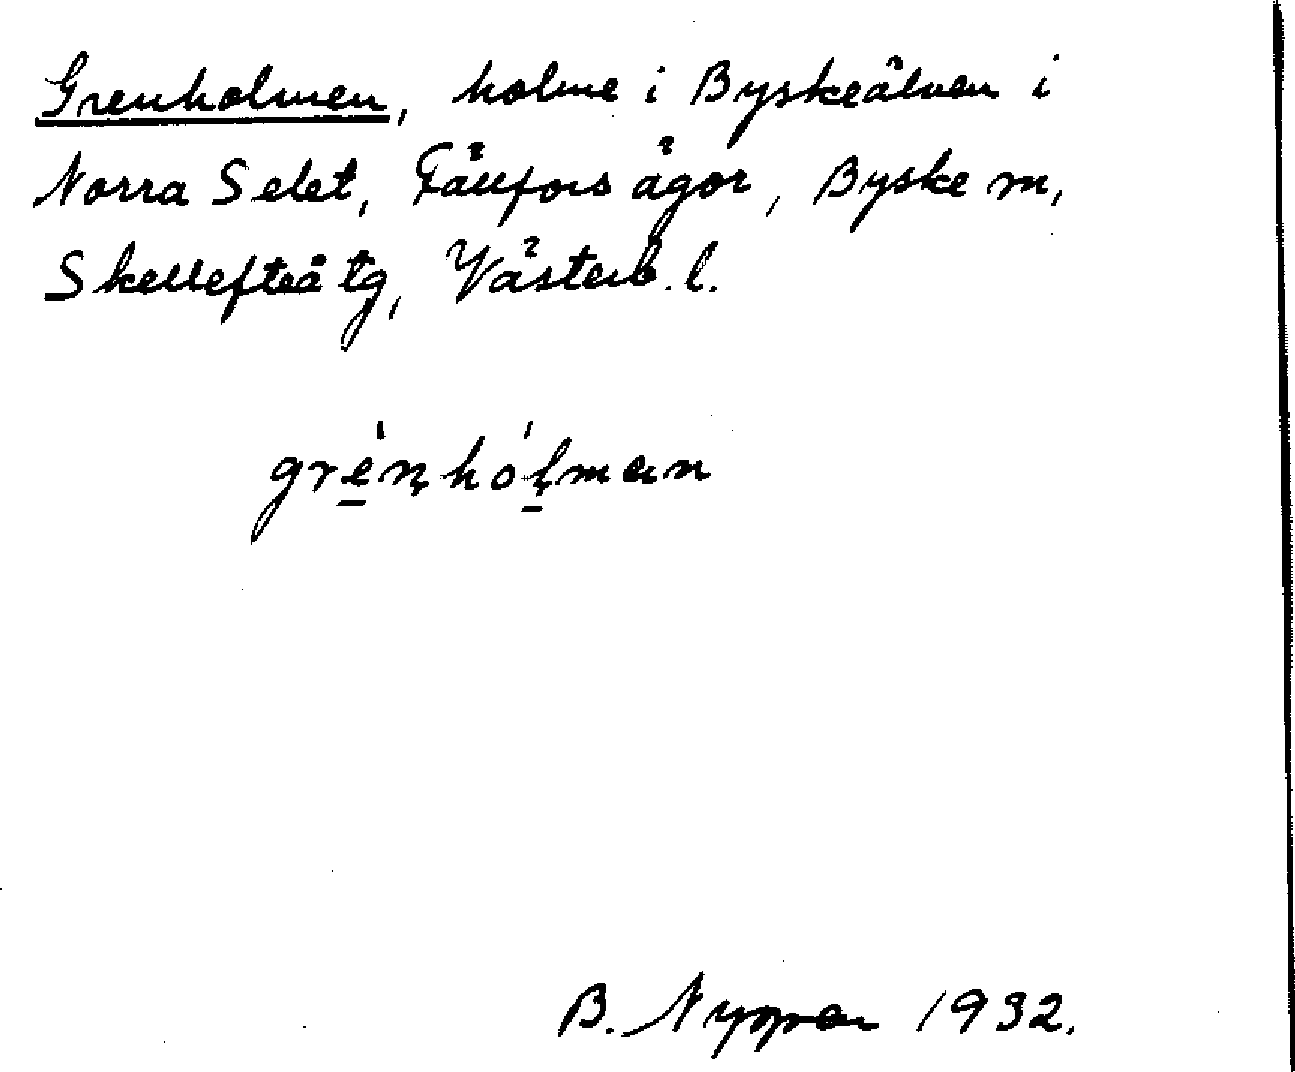 Grenholmen, holme i Byskeälven i
Norra Selet, Fällfors ägor, Byske sn,
Skellefteå tg, Västerb. l.
grènhólman
B. 1932.